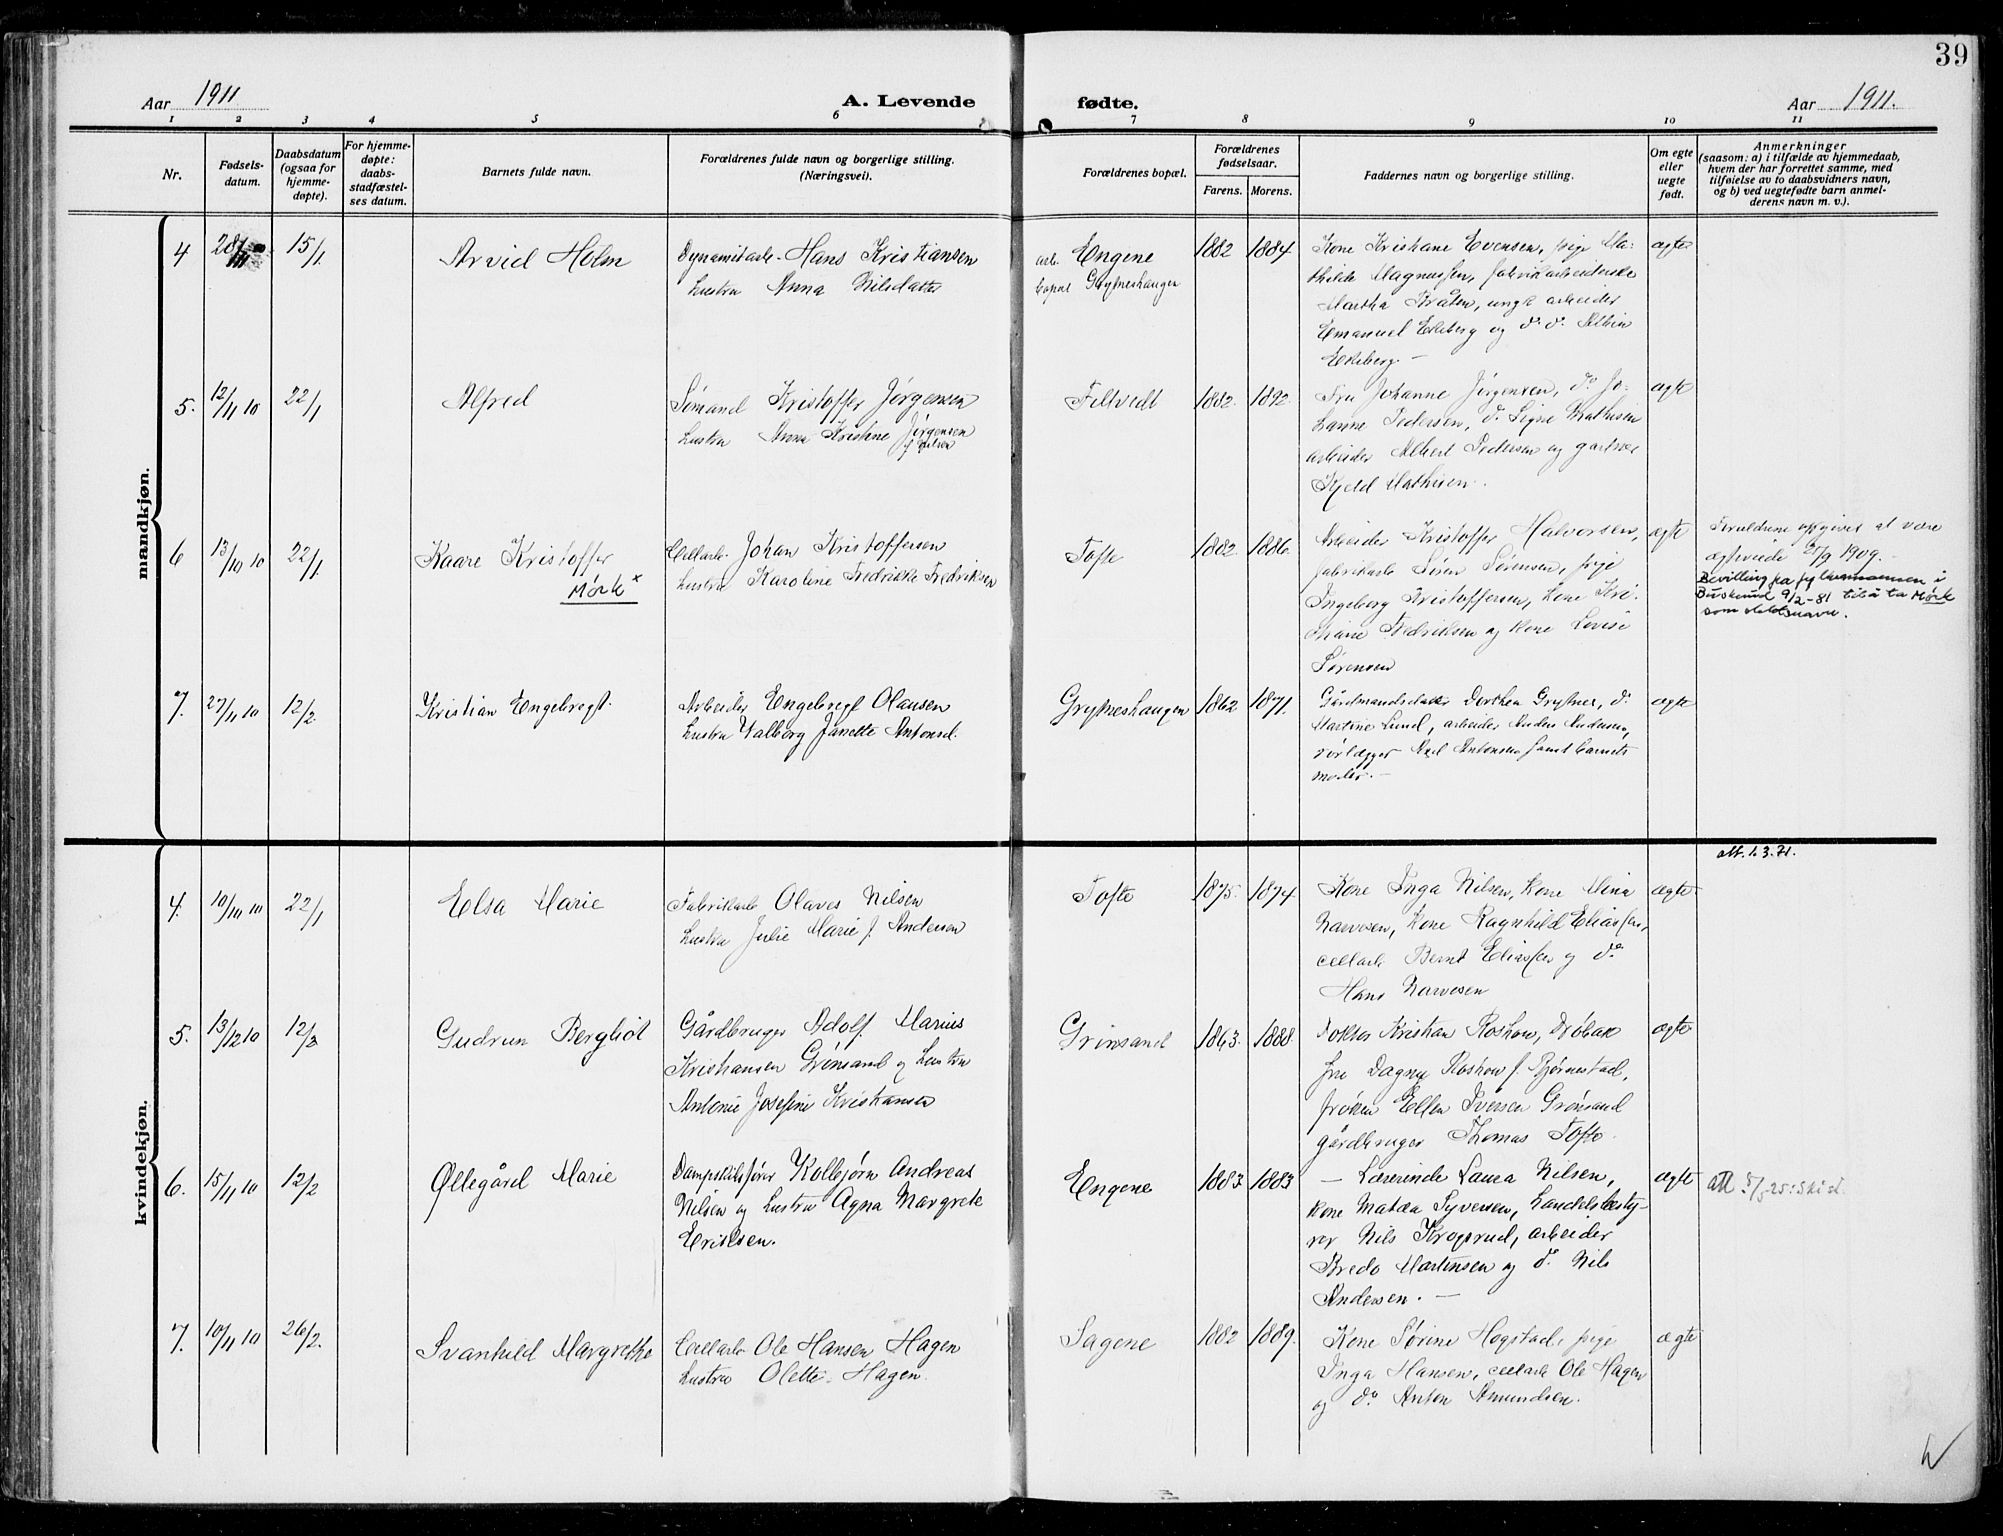 39
Aar 1911
A. Levende
fødte.
Aar 1911.
1 2 3 4 5 6 7 8 9 10 11
Nr.
Fødsels-
datum.
Daabsdatum
(ogsaa for
hjemme-
døpte).
For hjemme-
døpte:
daabs-
stadfæstel-
ses datum.
Barnets fulde navn.
Forældrenes fulde navn og borgerlige stilling.
(Næringsvei).
Forældrenes bopæl.
Forældrenes
fødselsaar.
Farens. Morens.
Faddernes navn og borgerlige stilling.
Om egte
eller
uegte
født.
Anmerkninger
(saasom: a) i tilfælde av hjemmedaab,
hvem der har forrettet samme, med
tilføielse av to daabsvidners navn,
og b) ved uegtefødte barn anmel-
derens navn m. v.).
mandkjøn.
4 15/1. Arvid Holm
Dynamitarb. Hans Kristiansen
Hustru Anna Nilsdatter
Engene
Grytneshaugen
1882 1884
Kone Kristiane Evensen, pige Ma-
thilde Magnussen, fabrikarbeiderske
Martha Bråten, ungk arbeider
Emanuel Ekeberg og do do
Ekeberg. —
ægte
5. 12/11 10 22/1 Alfred
Sømand Kristoffer Jørgensen
Hustru Anna Kristine Jørgensen
Filtvedt
1882. 1892.
Fru Johanne Jørgensen, do Jo-
hanne Pedersen, do Signe Mathisen
arbeider Albert Pedersen og gartner
Kjeld Mathisen.
ægte
6 13/10 10 22/1. Kaare Kristoffer
Mørk x
Cellarb. Johan Kristoffersen
Hustru Karoline Fredrikke Fredriksen
Tofte
1882. 1886.
Arbeider Kristoffer Halvorsen,
fabrikarb Søren Sørensen, pige
Ingeborg Kristoffersen, kone Kri-
stiane Fredriksen og kone Lovise
Sørensen
ægte
Forældrene opgives at være
ægteviede 21/9 1909.
Bevilling fra fylkesmannen i
Buskerud 9/2-81 til å ta Mørk
som slektsnavn.
7. 27/11 10 12/2. Kristian Engebregt.
Arbeider Engebregt Olausen
Hustru Valborg Janette Antonsd.
Grytneshaugen
1862 1871.
Gårdmandsdatter Dorthea Grytnes, do
Martine Lund, arbeider Anders Andersen,
rørlægger Axel Antonsen samt barnets
moder. —
ægte
kvindekjøn.
att. 1.3.71.
4. 10/10 10 22/1 Elsa Marie
Fabrikarb Olaves Nilsen
Hustru Julie Marie f. Andersen
Tofte
1875. 1874.
Kone Inga Nilsen, kone Mina
Narvesen, kone Ragnhild Eliassen,
cellarb Bernt Eliassen og do
Hans Narvesen
ægte
5. 13/12 10 12/2 Gudrun Bergliot
Gårdbruger Adolf Marius
Kristiansen Grimsand og Hustru
Antonie Josefine Kristiansen
Grimsand
1863. 1888.
Doktor Kristian Roshow, Drøbak
fru Dagny Roshow f. Bjørnestad,
frøken Ellen Iversen Grønsand
gårdbruger Thomas Tofte.
ægte
6. 15/11 10 12/2 Øllegård Marie
Dampskibsfører Kolbjørn Andreas
Nilsen og Hustru Agna Margrete
Eriksen.
Engene
1883 1883
— Lærerinde Laura Nilsen,
kone Matea Syversen, handelsbesty-
rer Nils Krogsrud, arbeider
Bredo Martinsen og do Nils
Andersen. —
ægte
att. 5/5 25
7. 10/11 10 26/2. Svanhild Margrethe
Cellarb Ole Hansen Hagen
Hustru Olette Hagen.
Sagene
1882 1889.
Kone Sørine Hogstad, pige
Inga Hansen, cellarb Ole Hagen
og do Anton Amundsen.
ægte